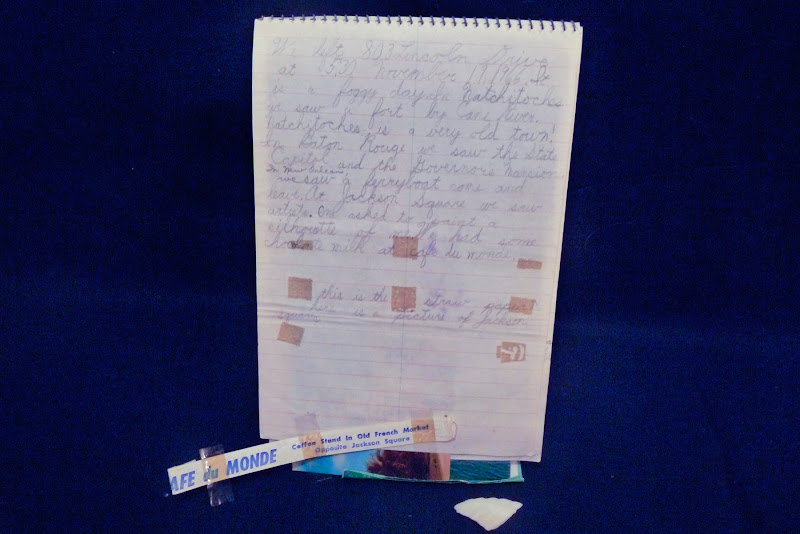 We left 803 Lincoln Drive
at November
is a foggy day. In Natchitoches
we saw a fort by Cane River.
Natchitoches is a very old town!
In Baton Rouge we saw the State
Capitol and the Governors Mansion
In New Orleans
we saw a ferryboat come and
leave. At Jackson Square we saw
artists. One asked to paint a
silhouette of me. I had some
chocolate milk at Cafe du monde.
this is the straw paper
here is a picture of Jackson
square
AFE du MONDE
Coffee Stand in Old French Market
Opposite Jackson Square